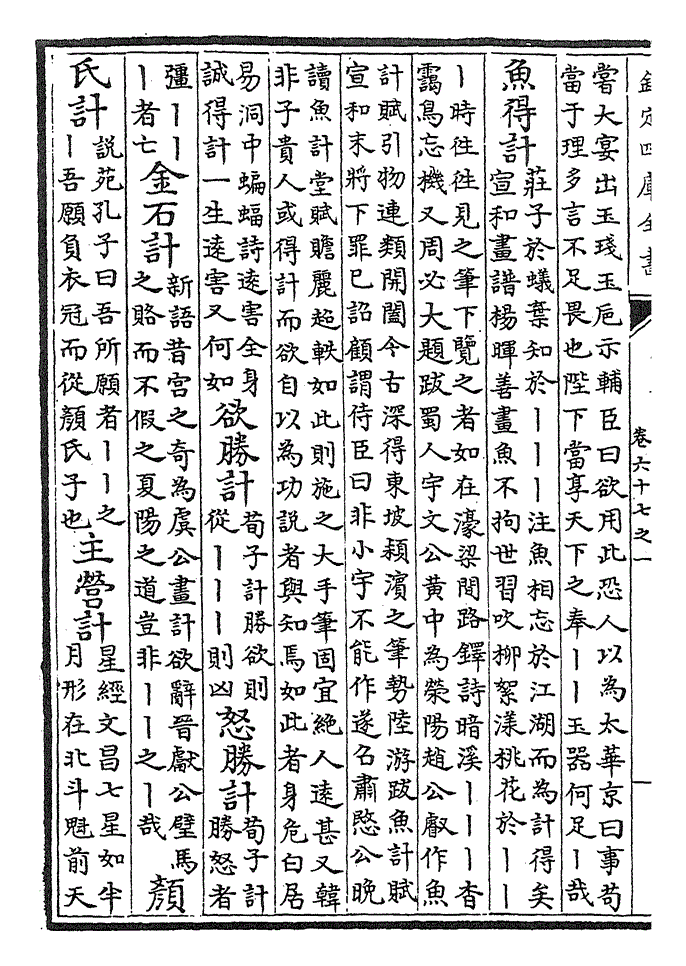 欽定四庫全書
卷六十七之一
一
嘗大宴出玉琖玉巵示輔臣曰欲用此恐人以為太華京曰事苟
當于理多言不足畏也陛下當享天下之奉丨丨玉器何足丨哉
魚得計
莊子於蟻棄知於丨丨丨注魚相忘於江湖而為計得矣
宣和畫譜楊暉善畫魚不拘世習吹柳絮漾桃花於丨丨
丨時往往見之筆下覽之者如在濠梁間路鐸詩暗溪丨丨丨杳
靄鳥忘機又周必大題跋蜀人宇文公黃中為榮陽趙公叡作魚
計賦引物連類開闔今古深得東坡潁濱之筆勢陸游跋魚計賦
宣和末將下罪已詔顧謂侍臣曰非小宇不能作遂召肅愍公晚
讀魚計堂賦贍麗超軼如此則施之大手筆固宜絕人遠甚又韓
非子貴人或得計而欲自以為功說者與知焉如此者身危白居
易洞中蝙蝠詩遠害全身
誠得計一生遠害又何如
欲勝計
荀子計勝欲則
從丨丨丨則凶
怒勝計
荀子計
勝怒者
彊丨丨
丨者亡
金石計
新語昔宮之奇為虞公畫計欲辭晉獻公璧馬
之賂而不假之夏陽之道豈非丨丨之丨哉
顏
氏計
說苑孔子曰吾所願者丨丨之
丨吾願負衣冠而從顏氏子也
主營計
星經文昌七星如半
月形在北斗魁前天